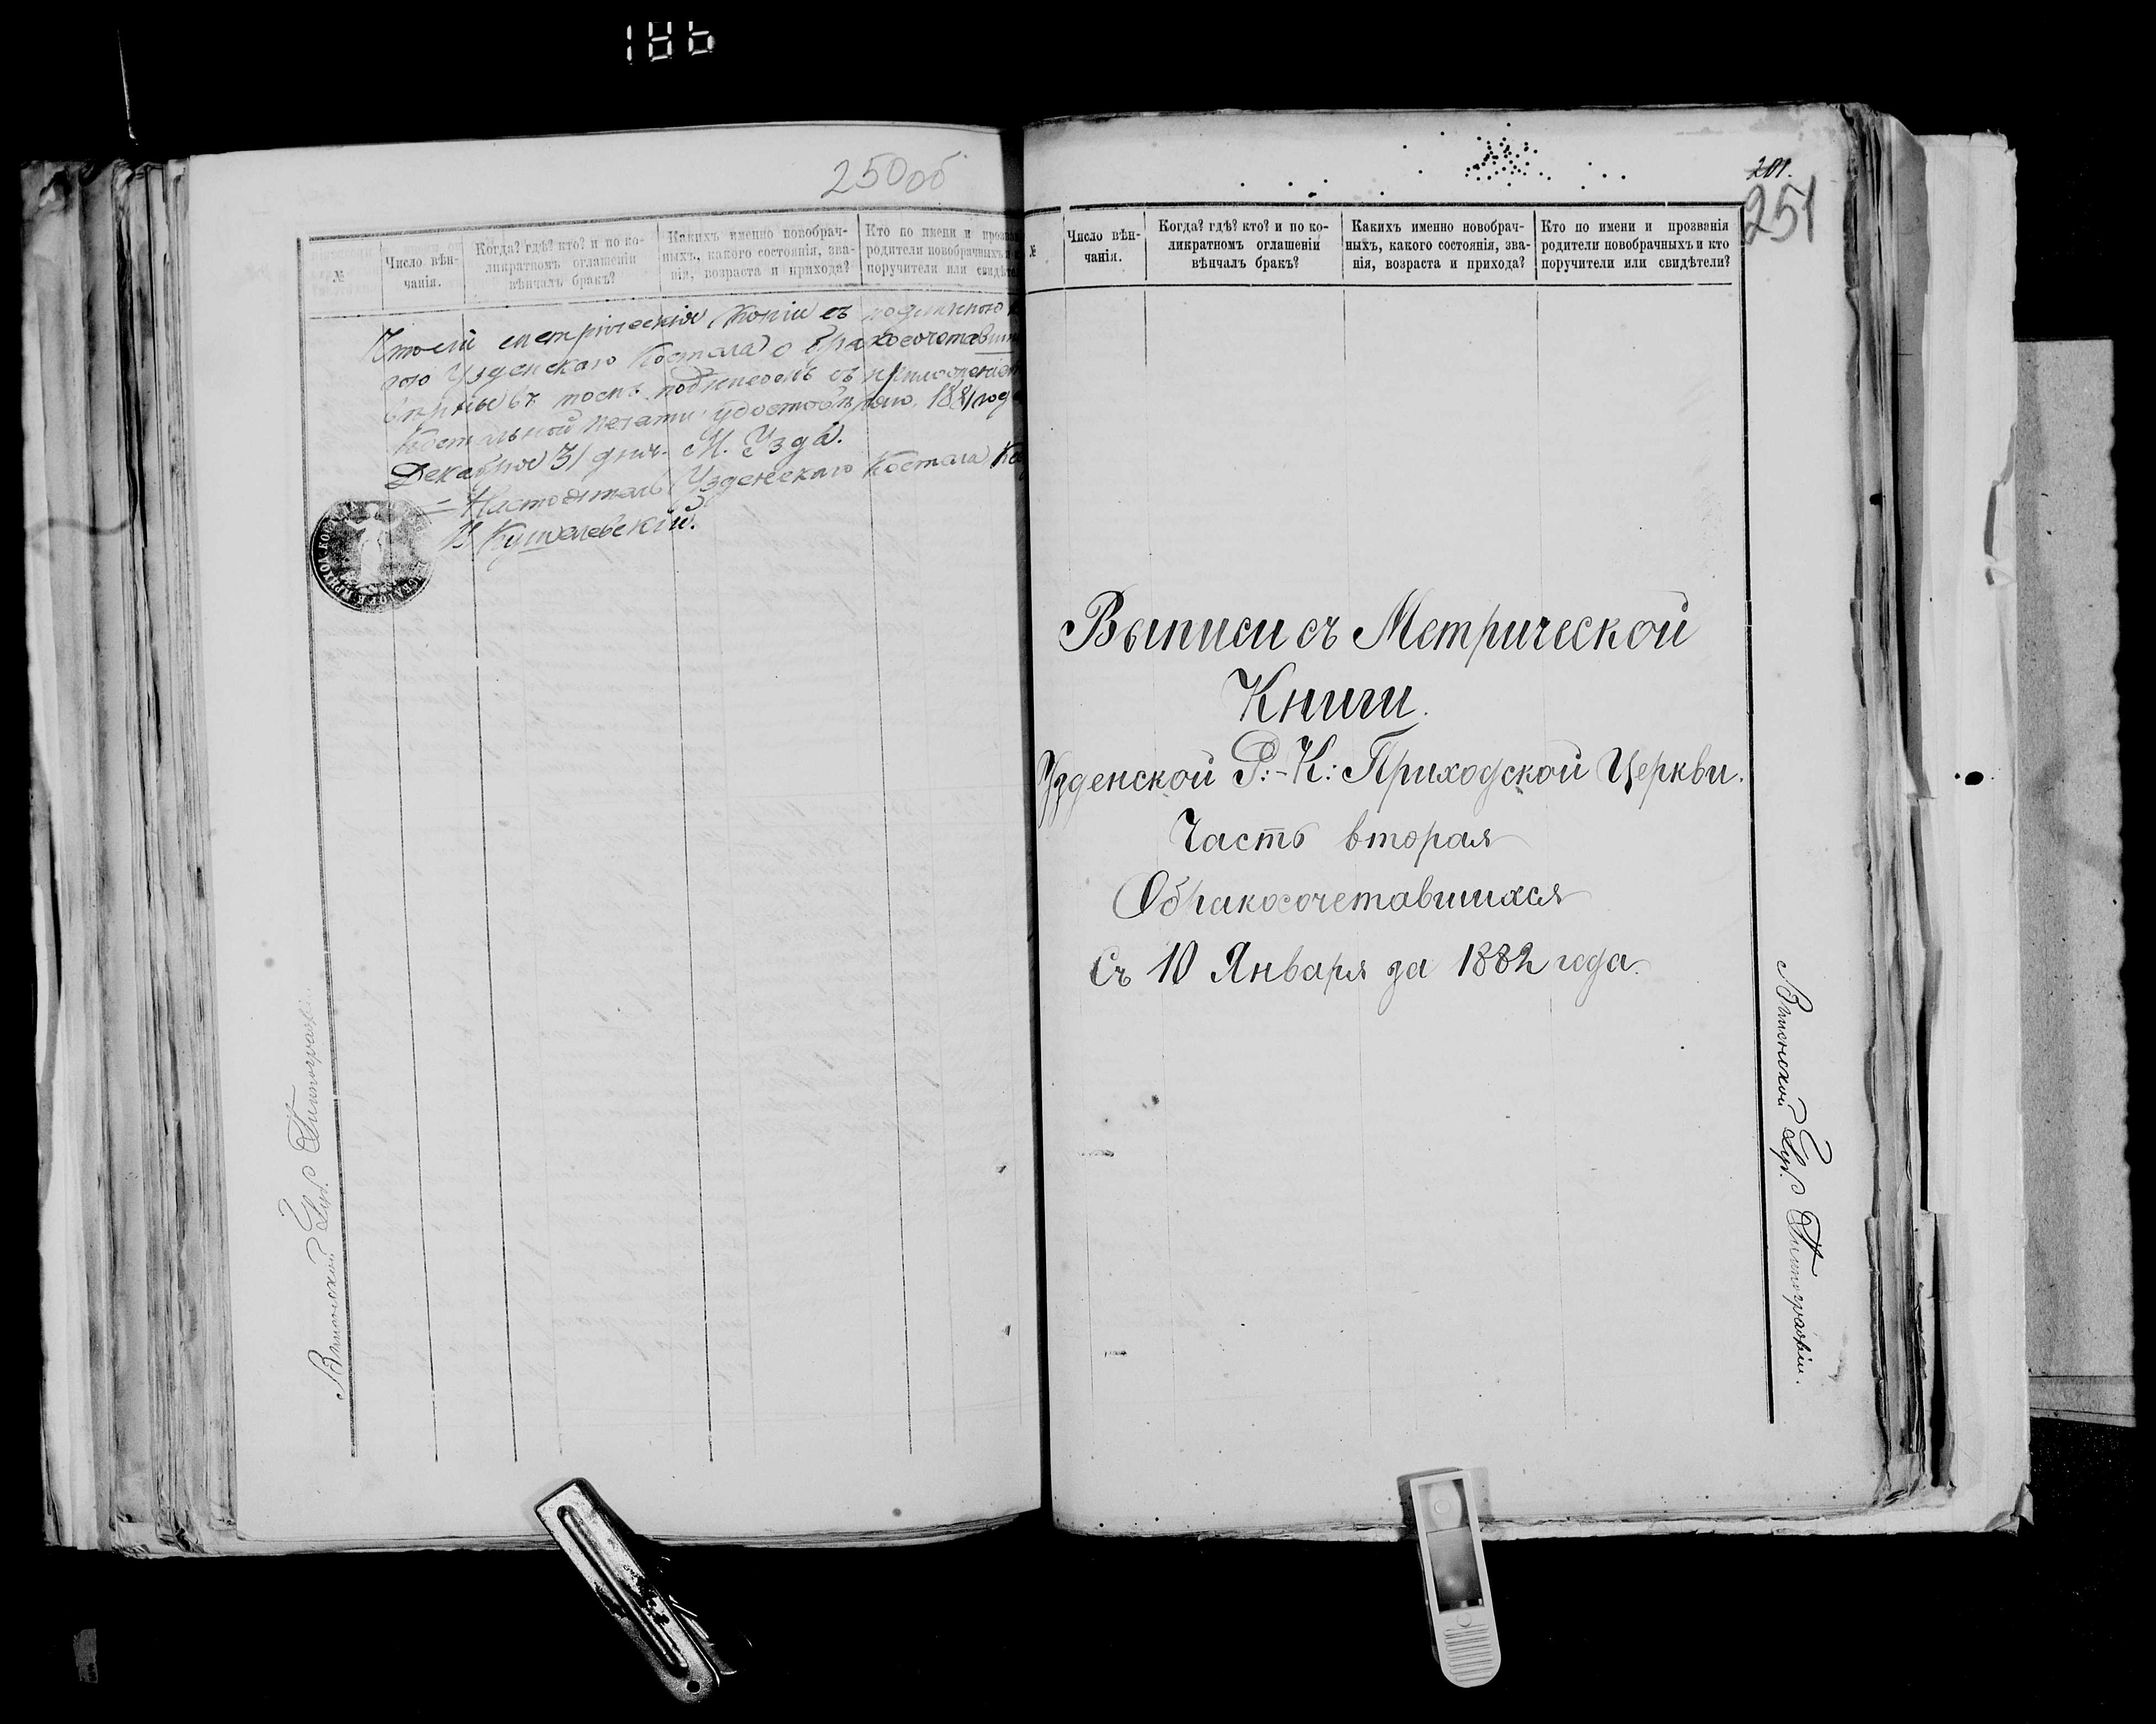 186
250об
№
Число вѣн-
чанія.
Когда? гдѣ? кто? и по ко-
ликратномъ оглашеніи
вѣнчалъ бракъ?
Какихъ именно новобрач-
ныхъ, какого состоянія, зва-
нія, возраста и прихода?
Кто по имени и прозва
родители новобрачныхъ
поручители или свидѣте
Что сіи метрическія копіи съ подлинною
гою Узденскаго Костела о бракосочетавши
вѣрны въ томъ подписомъ съ приложеніем
Костельной печати удостовѣряю. 1881 года
Декабря 31 дня. М. Узда.
Настоятель Узденскаго Костела
Кушелевскій.
Виленской Губ. Типографіи.
201.
251
№
Число вѣн-
чанія.
Когда? гдѣ? кто? и по ко-
ликратномъ оглашеніи
вѣнчалъ бракъ?
Какихъ именно новобрач-
ныхъ, какого состоянія, зва-
нія, возраста и прихода?
Кто по имени и прозванія
родители новобрачныхъ и кто
поручители или свидѣтели?
Выписи съ Метрической
Книги.
Узденской Р:-К: Приходской Церкви.
Часть вторая
Обракосочетавшихся
Съ 10 Января за 1882 года.
Виленской Губ. Типографіи.